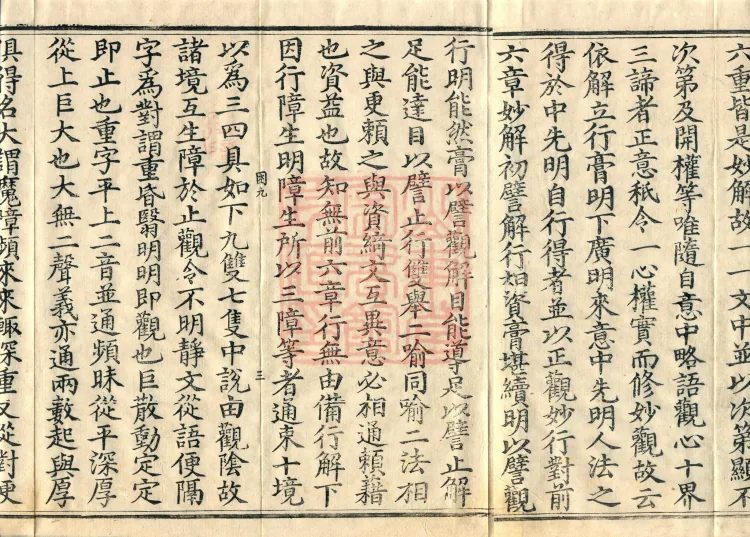 六重皆是妙解故一一文中並以次第顯不
次第及開權等唯隨自意中略語觀心十界
三諦者正意秖令一心權實而修妙觀故云
依解立行膏明下廣明來意中先明人法之
得於中先明自行得者並以正觀妙行對前
六章妙解初譬解行如資膏堪續明以譬觀
行明能然膏以譬觀解目能導足以譬止解
足能達目以譬止行雙舉二喻同喻二法相
之與更賴之與資綺文互異意必相通賴藉
也資益也故知無前六章行無由備行解下
因行障生明障生所以三障等者通東十境
九 三
以為三四具如下九雙七隻中說由觀陰故
諸境互生障於止觀令不明靜文從語便隔
字為對謂重昏翳明明即觀也巨散動定定
即止也重字平上二音並通頻昧從平深厚
從上巨大也大無二聲義亦通兩數起與厚
俱得名大謂魔障頻來來輙深重反從對便